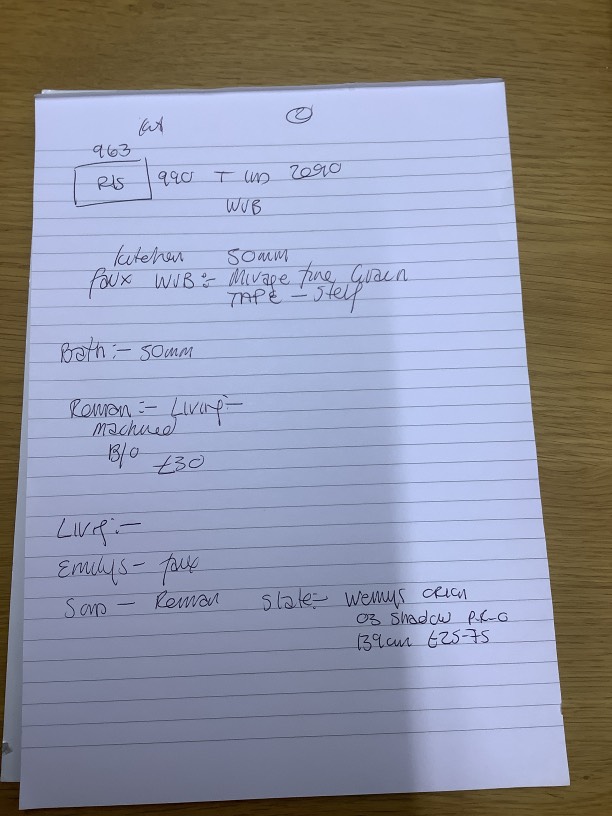 2
963
RLS 990 2090
WVB
kitchen 50mm
faux WVB :- Mirage fine Grain
TAPE - Stelf
Bath :- 50mm
Roman :- Living :-
Machined
B/O £30
Livg :-
Emilys - faux
Sons - Roman Slate :- Wemys
03 Shadow P.R-O
139cm £25-75